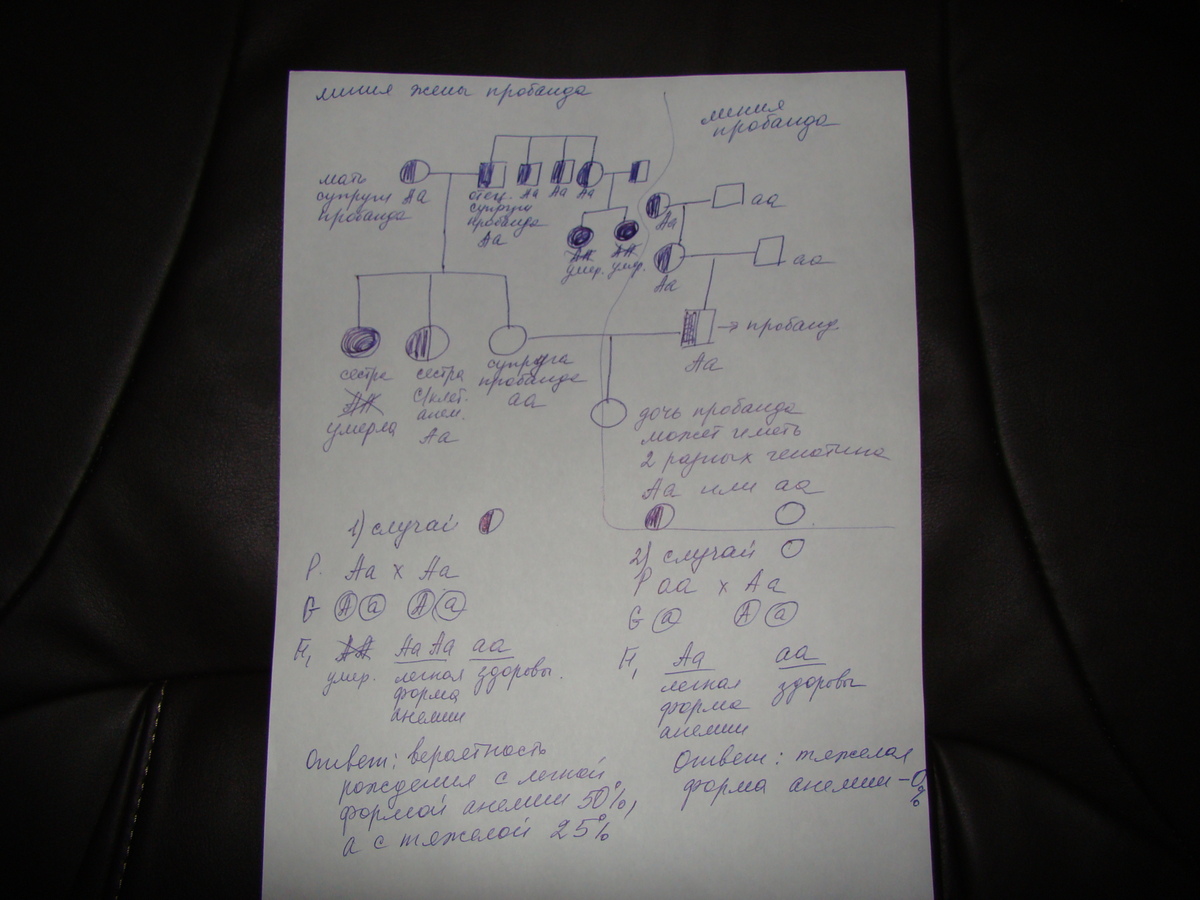 линия жены пробанда
линия
пробанда
мать
супруги Аа
пробанда
отец
супруги
пробанда
Аа
Аа
Аа
Аа
АА
умер.
АА
умер.
Аа
аа
Аа
аа
→ пробанд
Аа
сестра
АА
умерла
сестра
с/клет.
анем.
Аа
супруга
пробанда
аа
дочь пробанда
может иметь
2 разных генотипа
Аа или аа
1) случай
P. Аа х Аа
G А а А а
F1 АА Аа Аа аа
умер. легкая здоровы.
форма
анемии
Ответ: вероятность
рождения с легкой
формой анемии 50%,
а с тяжелой 25%
2) случай
P аа х Аа
G а А а
F1 Аа аа
легкая здоровы
форма
анемии
Ответ: тяжелая
форма анемии – 0%